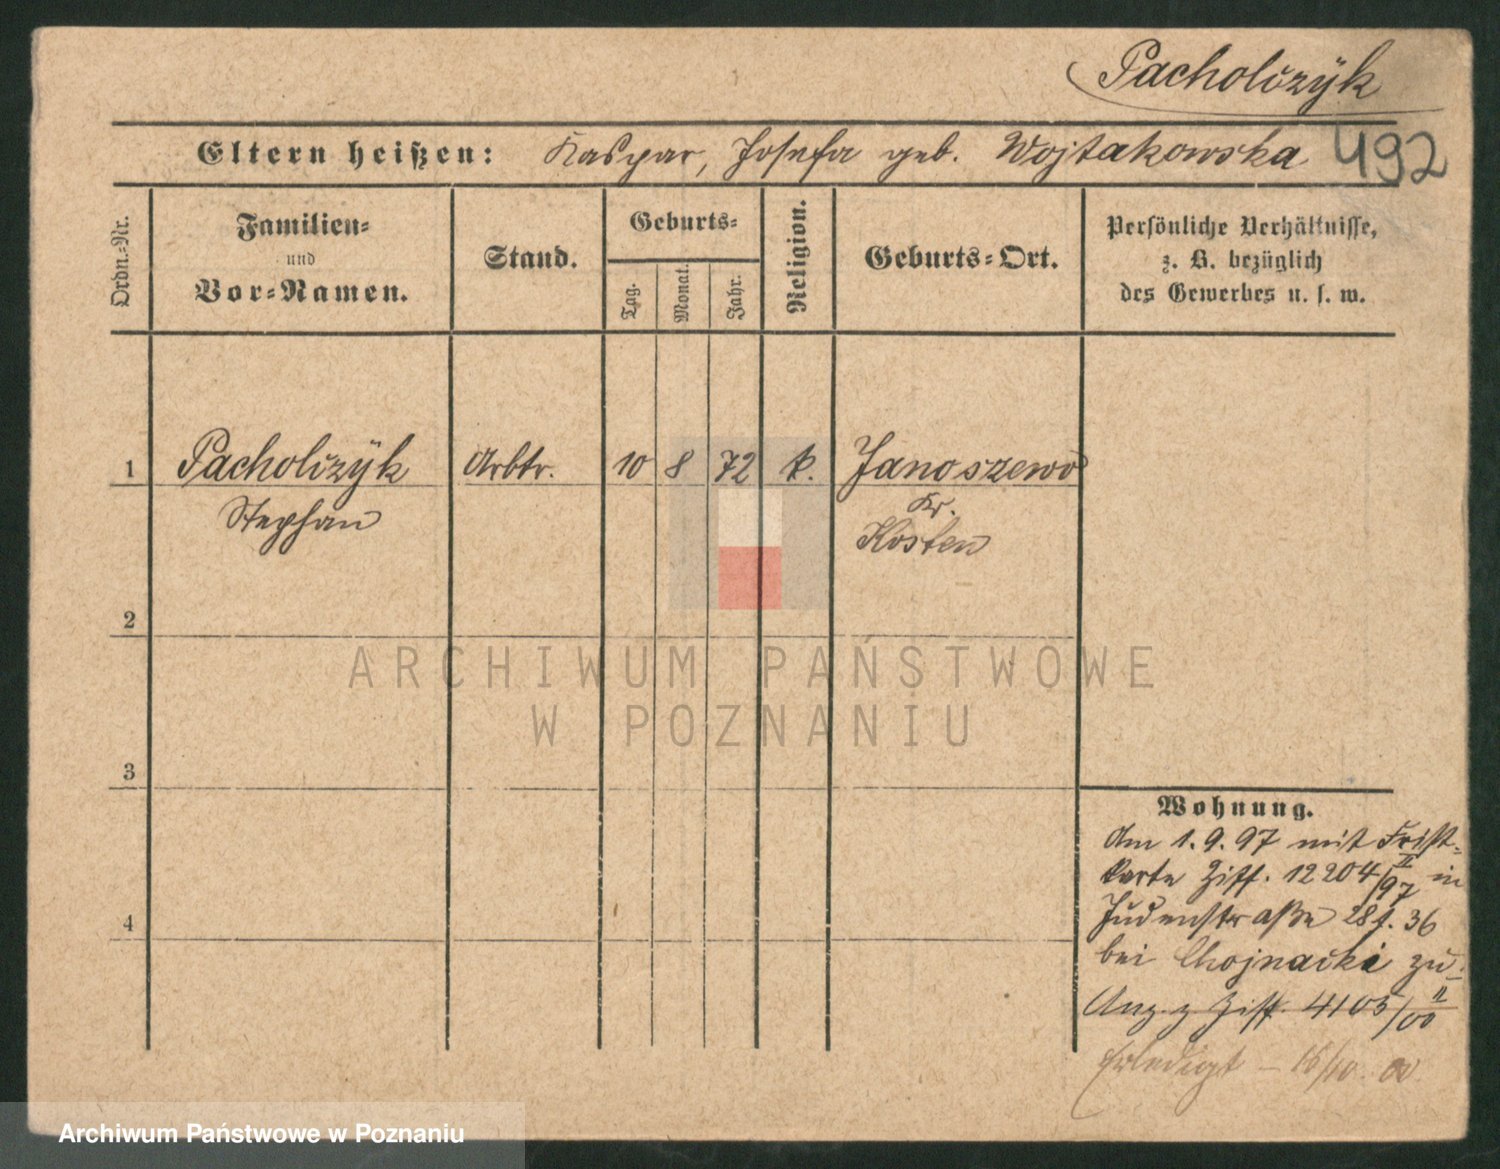 Pacholčzÿk
Eltern heißen: Kaspar, Josefa geb. Wojtakowska 492
Ordn.-Nr.
Familien-
und
Vor-Namen.
Stand.
Geburts-
Tag.
Monat.
Jahr.
Religion.
Geburts-Ort.
Persönliche Verhältnisse,
z. B. bezüglich
des Gewerbes u. s. w.
1 Pacholčzÿk Arbtr. 10 8 72 k. Janoszewo
Stephan Kr.
Kosten
2
ARCHIWUM PAŃSTWOWE
W POZNANIU
3
Wohnung.
Am 1.9.97 mit Frist-
karte Ziff. 12204/II 97 in
Judenstraße 28 36
bei Chojnacki zu.
Anz. z Ziff. 4105/II 00
Erledigt – 16/10. 00.
4
Archiwum Państwowe w Poznaniu